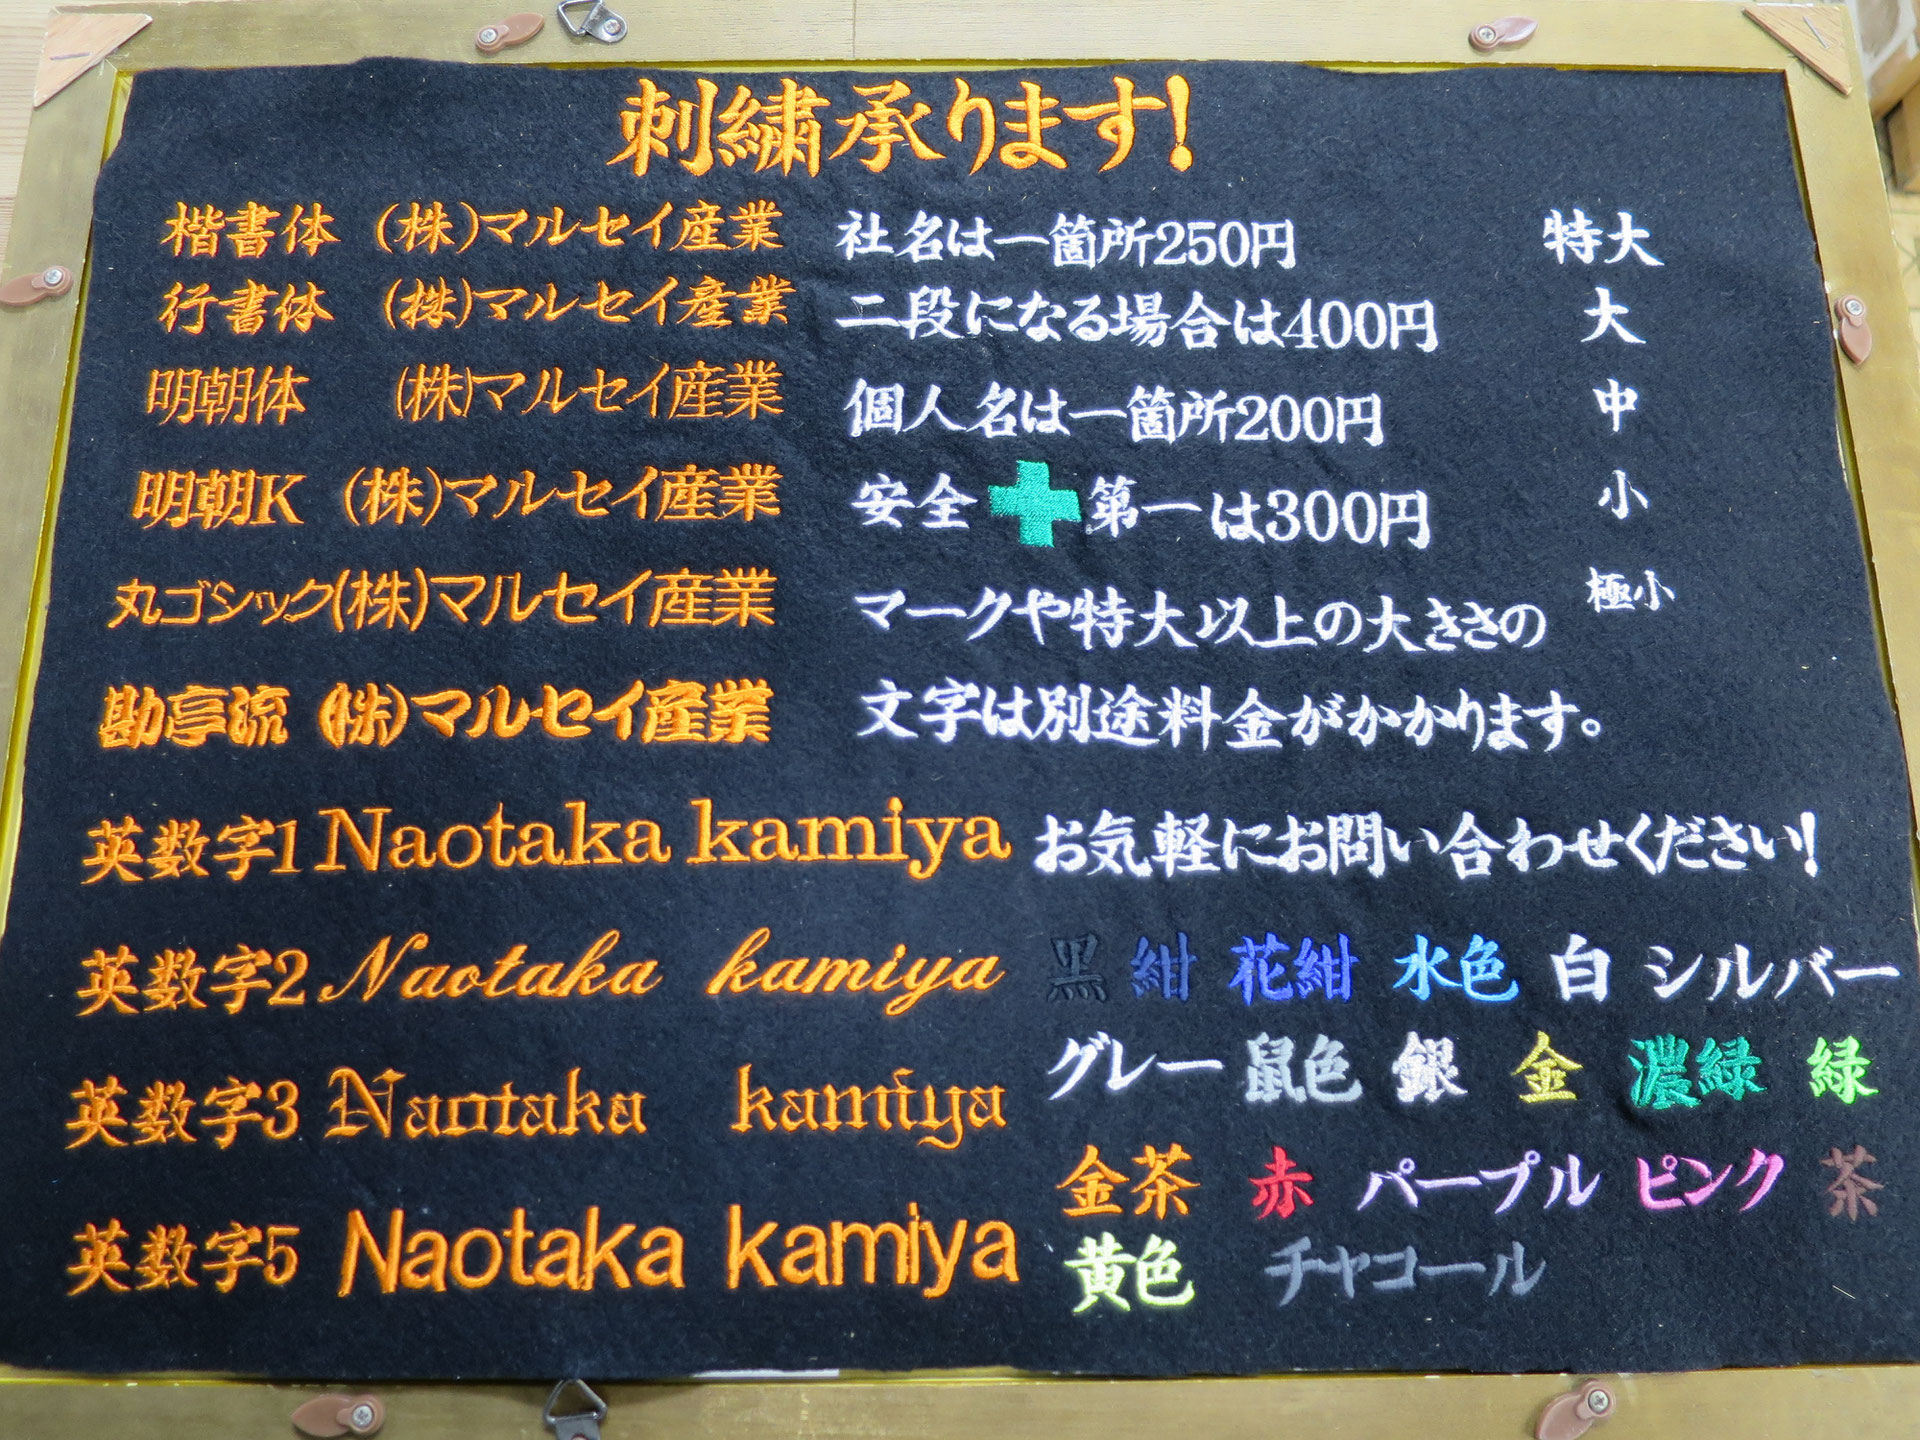 刺繍承ります!
楷書体 (株)マルセイ産業
行書体 (株)マルセイ産業
明朝体 (株)マルセイ産業
明朝K (株)マルセイ産業
丸ゴシック(株)マルセイ産業
勘亭流 (株)マルセイ産業
英数字1 Naotaka kamiya
英数字2 Naotaka kamiya
英数字3 Naotaka kamiya
英数字5 Naotaka kamiya
社名は一箇所250円
二段になる場合は400円
個人名は一箇所200円
安全 第一は300円
マークや特大以上の大きさの
文字は別途料金がかかります。
お気軽にお問い合わせください!
特大
大
中
小
極小
黒 紺 花紺 水色 白 シルバー
グレー 鼠色 銀 金 濃緑 緑
金茶 赤 パープル ピンク 茶
黄色 チャコール